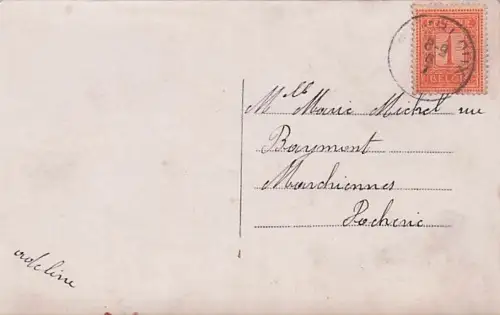 1
BELGIË
Mlle Marie Michel rue
Baymont
Marchiennes
Pocherie
adeline